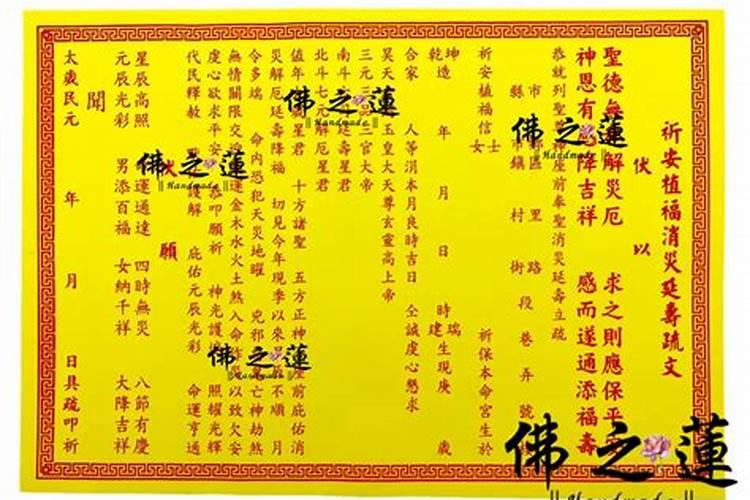 祈安植福消災延壽疏文
伏以
聖德無解災厄 求之則應保平
神恩有降吉祥 感而遂通添福壽
恭就列聖神座前奉聖消災延壽立疏
市 區 里 路 段 巷 弄 號
縣 市鎮 村 街
祈安植福信士女 祈保本命宮生於
乾坤造 年 月 日 時瑞建生現庚 歲
合家 人等涓本月良時吉日 仝誠虔心懸求
昊天玉皇大天尊玄靈高上帝
三元三品三官大帝
南斗延壽星君
北斗七元解厄星君
值年星君 十方諸聖 五方正神前庇佑消
災解厄延壽降福 切見今年現季以來不順 月
令多端 命內恐犯天災地曜 兇邪亡神劫煞
無情關限交達金木水火土煞入命災以致欠安
虔心欲求平安 恭叩願祈 神光護 照耀光輝
代民釋赦 護解 庇佑元辰光彩 命運亨通
伏願
星辰高照 運通達 四時無災 八節有慶
元辰光彩 男添百福 女納千祥 大降吉祥
聞
太歲民元 年 月 日具疏叩祈
佛之蓮
Handmade
佛之蓮
Handmade
佛之蓮
Handmade
佛之蓮
Handmade
佛之蓮
Handmade